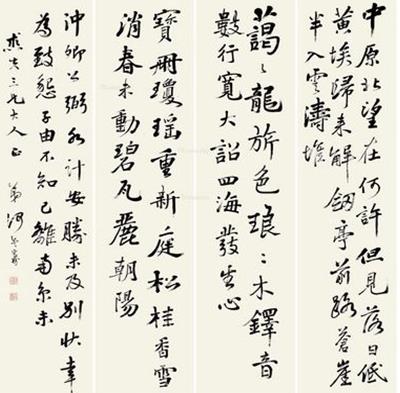 中原北望在何許但見落日低
黃埃歸來解劍亭前路蒼崖
半入雲濤堆
藹〻龍旂色琅〻木鐸音
數行寬大詔四海發生心
寶冊瓊瑤重新庭松桂香雪
消春未動碧瓦麗朝陽
沖卿公弼永計安勝未及別狀幸
為致怨子由不知已離南京未
三兄大人正
弟